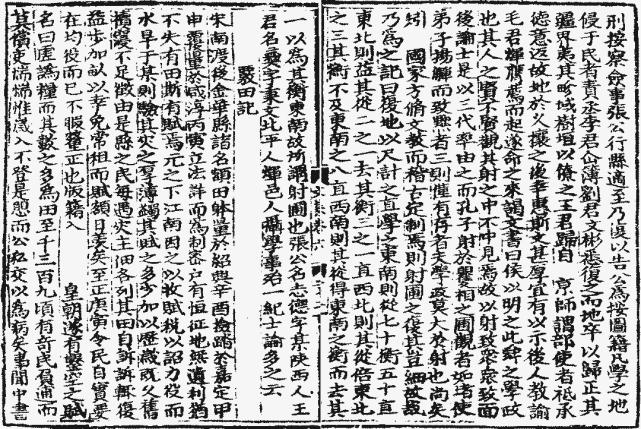 刑按察僉事張公行縣適至乃遂以告公為按圖籍凡學之地
侵于民者責丞李君仚簿劉君文彬悉復之而地卒以歸正其
疆界夷其畛域樹垣以條之王君歸自　京師謂部使者祗承
德意汲故地於久攘之後幸惠斯文甚厚宜有以示後人教諭
毛君輝應焉而起遂命之來謁文書曰侯以明之此辤之學政
也其人之質不肖觀其射之中不中見焉故以射致眾眾致而
後論士是以三代率由之而孔子射於矍相之圃觀者如堵使
弟子揚觶而致難者三則惟有存者夫學政莫大於射也尚矣
矧　國家方脩文教而稽古定制焉則射圃之復其豈細故哉
乃為之記曰復地以尺計之直學之東南則從七十衡五十直
東北則益其從二之一去其衡三之一直西北則其從倍東北
之三其衡不及東南之八直西南則其從得東南之衡而去其
一以為其衡東南故所謂射圃也張公名志德字某陝西人王
君名彝字秉文北平人輝邑人聶學事始一紀士論多之云
覈田記
宋南渡後金華縣諸名額田畝並於紹興辛酉撿踏於嘉定甲
申覆量於咸淳丙寅立法詳而為制密户有恒征地無遺利猶
不失有田斯有賦焉元之下江南因之以收賦稅以詔力役而
水旱于某則驗其灾之厚薄蠲其賦之多少加以歷歲既久舊
籍漫不足徵由是縣之民每遇灾主佃各列其田自訴訴輒復
益步加畝以幸免常租而賦額日表矣至正庚寅令民自實要
在均役而已不暇整正也版籍入　皇朝遂有懸空之賦
名曰虛糧而其數之多為田至千三百九頃有奇民負逋而
其償吏惴惴惟歲入不登是懼而公私交以為病矣事聞中書